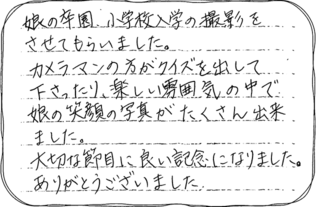 娘の卒園、小学校入学の撮影を
させてもらいました。
カメラマンの方がクイズを出して
下さったり、楽しい雰囲気の中で
娘の笑顔の写真がたくさん出来
ました。
大切な節目に良い記念になりました。
ありがとうございました.